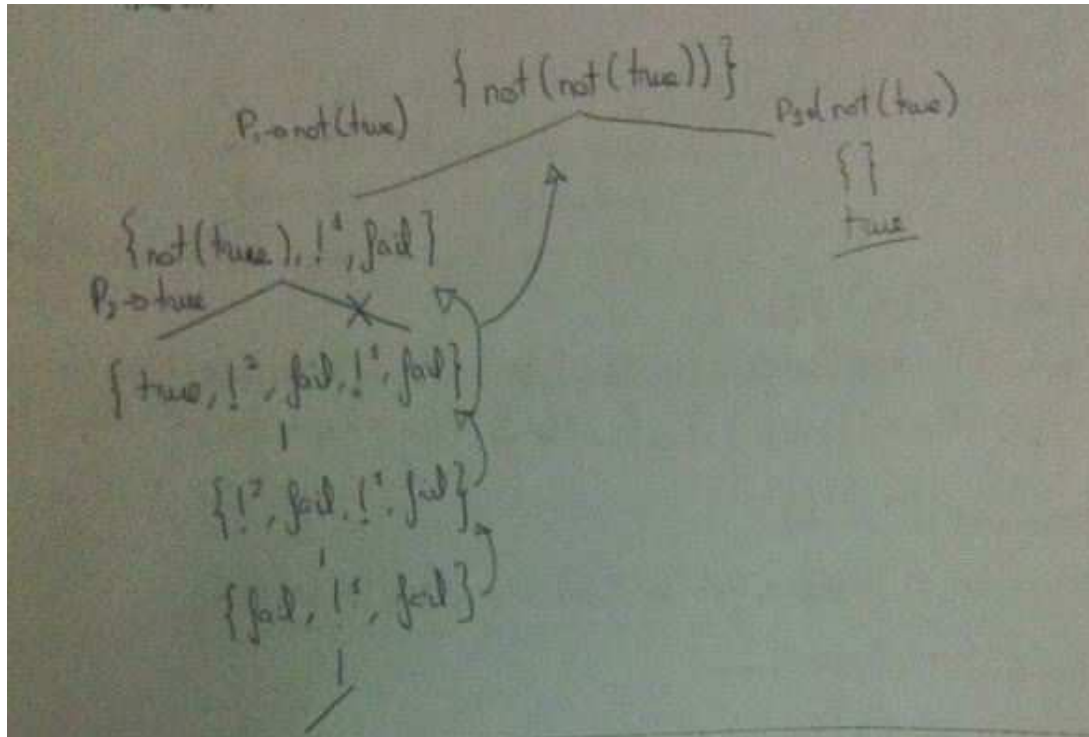 {not(not(true))}
P₁→not(true)
not(true)
{}
true
{not(true), !¹, fail}
P₂→true
{true, !², fail, !¹, fail}
{!², fail, !¹, fail}
{fail, !¹, fail}